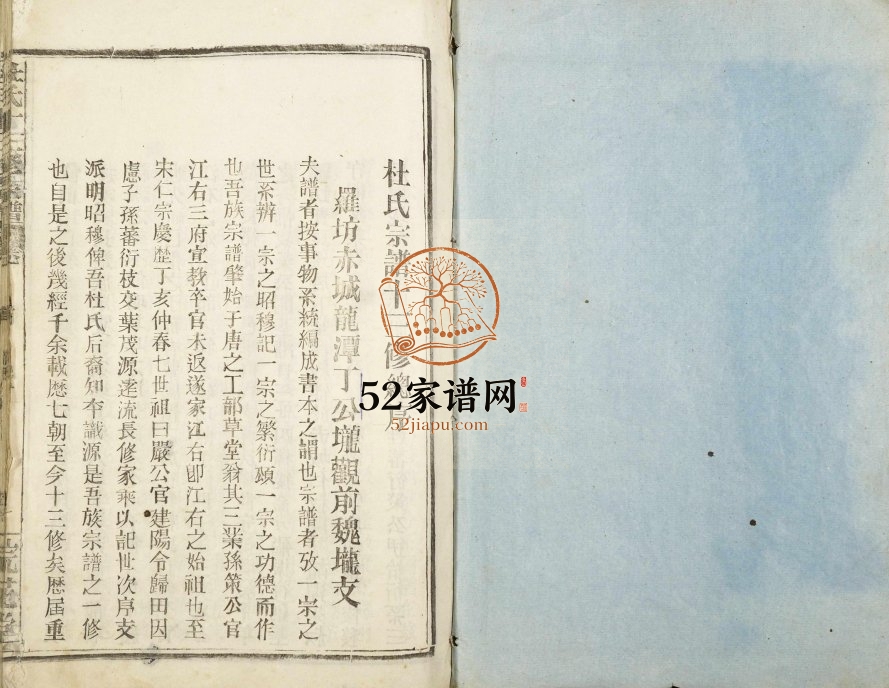 杜氏宗譜十三修總序
羅坊赤城龍潭丁公壠觀前魏壠支
夫譜者按事物系統編成書本之謂也宗譜者攷一宗之
世系辨一宗之昭穆記一宗之繁衍頌一宗之功德而作
也吾族宗譜肇始于唐之工部草堂翁其三葉孫策公官
江右三府宣教卒官未返遂家江右卽江右之始祖也至
宋仁宗慶歷丁亥仲春七世祖曰嚴公官建陽令歸田因
慮子孫蕃衍枝交葉茂源遠流長修家乘以記世次序支
派明昭穆俾吾杜氏后裔知夲識源是吾族宗譜之一修
也自是之後幾經千余載歷七朝至今十三修矣歷届重
52家谱网
52jiapu.com